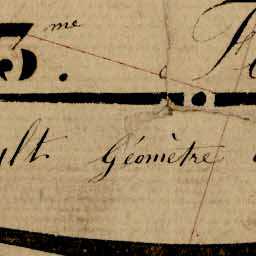 3.me
ult Géomètre